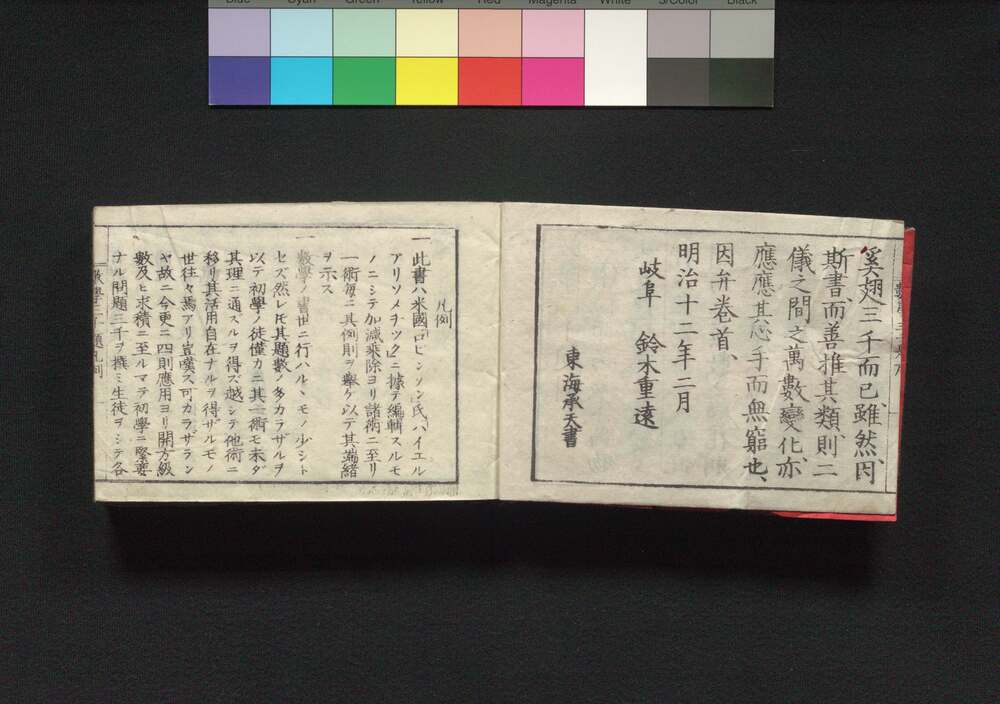 Blue Cyan Green Yellow Red Magenta White 3/Color Black
奚翅三千而已雖然因
斯書而善推其類則二
儀之間之萬數變化亦
應應其心手而無窮也、
因弁卷首、
明治十二年二月
岐阜 鈴木重遠
東海承天書
凡例
一此書ハ米國ロビンソン氏ハイエル
アリソメチツクニ據テ編輯スルモ
ノニシテ加減乘除ヨリ諸術ニ至リ
一術每ニ其例則ヲ擧ケ以テ其端緒
ヲ示ス
一數學ノ書世ニ行ハルヽモノ少シト
セズ然レ𪜈其題數ノ多カラザルヲ
以テ初學ノ徒僅カニ其一術モ未ダ
其理ニ通ズルヲ得ス越シテ他術ニ
移リ其活用自在ナルヲ得ザルモノ
世往々焉アリ豈嘆ス可カラザラン
ヤ故ニ今更ニ四則應用ヨリ開方級
數及ヒ求積ニ至ルマテ初學ニ緊要
ナル問題三千ヲ撰ミ生徒ヲシテ各